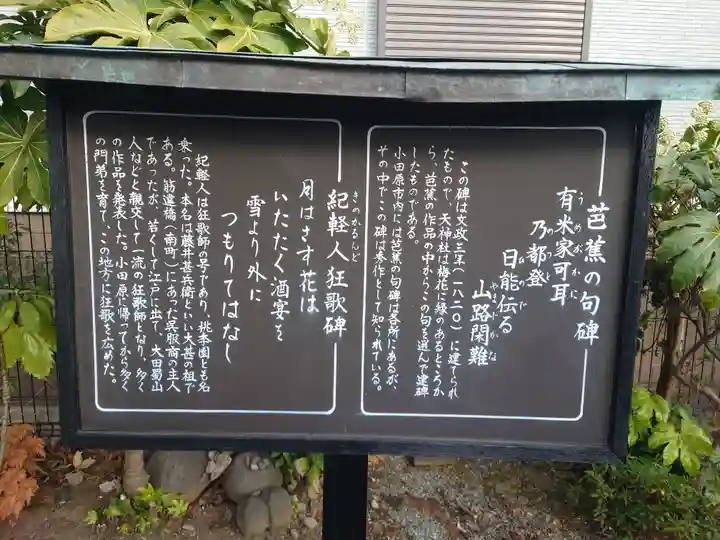 芭蕉の句碑
有米家可耳
うめがかに
乃都登
のっと
日能伝る
ひのでる
山路閑難
やまじかな
この碑は文政三年(一八二〇)に建てられ
たもので、天神社は梅花に縁のあるところか
ら、芭蕉の作品の中からこの句を選んで建碑
したものである。
小田原市内には芭蕉の句碑は各所にあるが、
その中でこの碑は秀作として知られている。
紀軽人狂歌碑
きのかるんど
月はさす花は
いたたく酒宴を
雪より外に
つもりてはなし
紀軽人は狂歌師の号であり、桃李園とも名
乗った。本名は藤井甚兵衛といい大甚の祖で
ある。筋違橋(南町)にあった呉服商の主人
であったが、若くして江戸に出て、大田蜀山
人などと親交して一流の狂歌師となり、多く
の作品を発表した。小田原に帰ってから多く
の門弟を育て、この地方に狂歌を広めた。